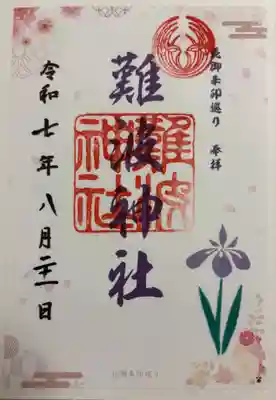 花御朱印巡り 奉拝
難波神社
難波神社
令和七年八月二十一日